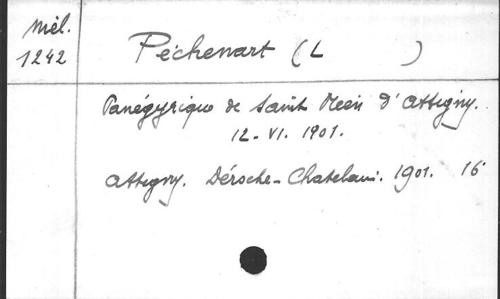 Mél.
1242
Péchenart (L )
Panégyrique de Saint Méen d'Attigny.
12-VI. 1901.
Attigny. Déroche-Chatelain. 1901. 16°